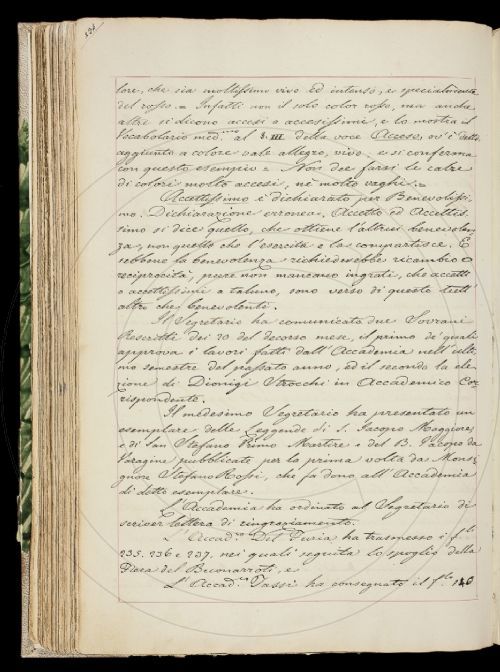 lore, che sia moltissimo vivo ed intenso, e specialmente
del rosso. = Infatti non il solo color rosso, ma anche
altri si dicono accesi e accesissimi, e lo mostra il
Vocabolario med.mo al §. III della voce Acceso, ov' è detto
aggiunto a colore vale allegro, vivo. e si conferma
con questo esempio = Non dee farsi le calze
di colori molto accesi, nè molto vaghi. =
Accettissimo è dichiarato per Benevolissi
mo. Dichiarazione erronea. Accetto ed Accettis
simo si dice quello, che ottiene l'altrui benevolen
za, non quello che l'esercita e la compartisce. E
sebbene la benevolenza richiederebbe ricambio e
reciprocità, pure non mancano ingrati, che accetti
o accettissimi a taluno, sono verso di questo tutt'
altro che benevolenti.
Il Segretario ha comunicato due Sovrani
Rescritti dei 20 del decorso mese, il primo de' quali
approva i lavori fatti dall' Accademia nell' ulti
mo semestre del passato anno, ed il secondo la ele
zione di Dionigi Strocchi in Accademico Cor
rispondente.
Il medesimo Segretario ha presentato un
esemplare delle Leggende di S. Jacopo Maggiore,
e di San Stefano Primo Martire e del B. Jacopo da
Varagine pubblicate per la prima volta da Monsi
gnore Stefano Rossi, che fa dono all' Accademia
di detto esemplare.
L' Accademia ha ordinato al Segretario di
scriver lettera di ringraziamento.
L' Accad.co Del Furia ha trasmesso i f.gli
235. 236 e 237, nei quali seguita lo spoglio della
Fiera del Buonarroti, e
L' Accad.co Tassi ha consegnato il f.lo